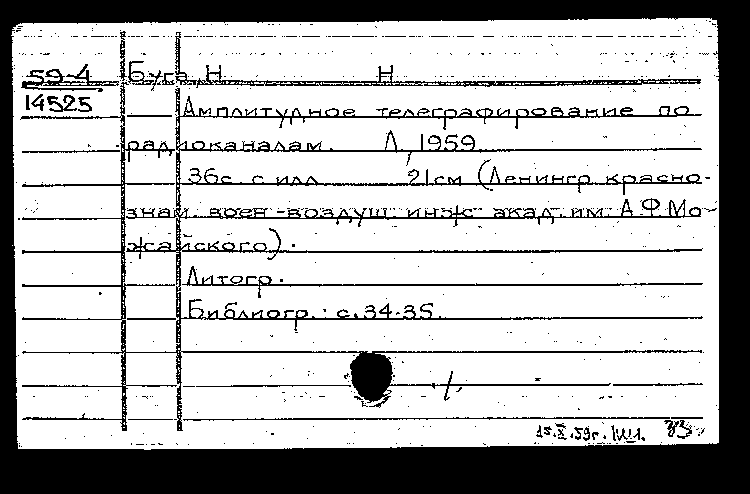 59-4 Буга, Н Н
14525
Амплитудное телеграфирование по
радиоканалам. Л, 1959
36с. с илл 21см (Ленингр красно-
знам. воен-воздуш. инж акад. им. А.Ф.Мо-
жайского).
Литогр.
Библиогр.: с.34-35.
15.X.59г.